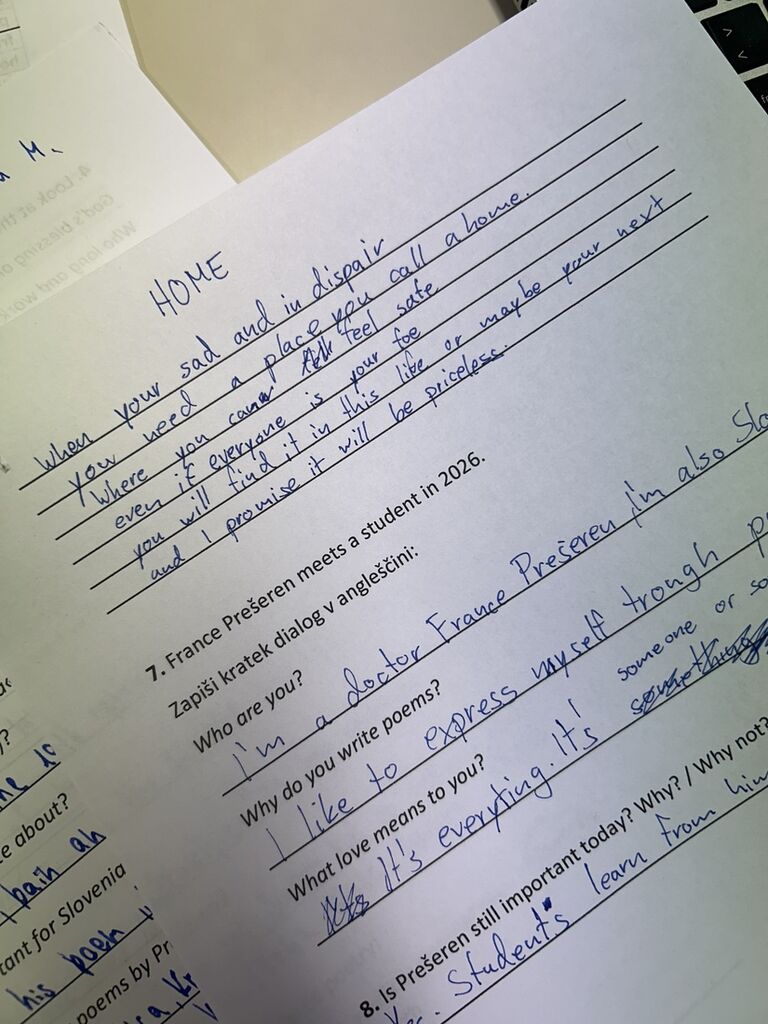 M.
4. Look at th
God's blessing on
Who long and work
HOME
When your sad and in dispair
you need a place you call a home.
Where you can feel safe
even if everyone is your foe
you will find it in this life or maybe your next
and I promise it will be priceless.
7. France Prešeren meets a student in 2026.
Zapiši kratek dialog v angleščini:
Who are you?
I'm a doctor France Prešeren, I'm also Slo
Why do you write poems?
I like to express myself trough p
What love means to you?
It's everyting. It's someone or so
8. Is Prešeren still important today? Why? / Why not?
Students learn from him
e about?
pain an
tant for Slovenia
his poem
poems by Pr